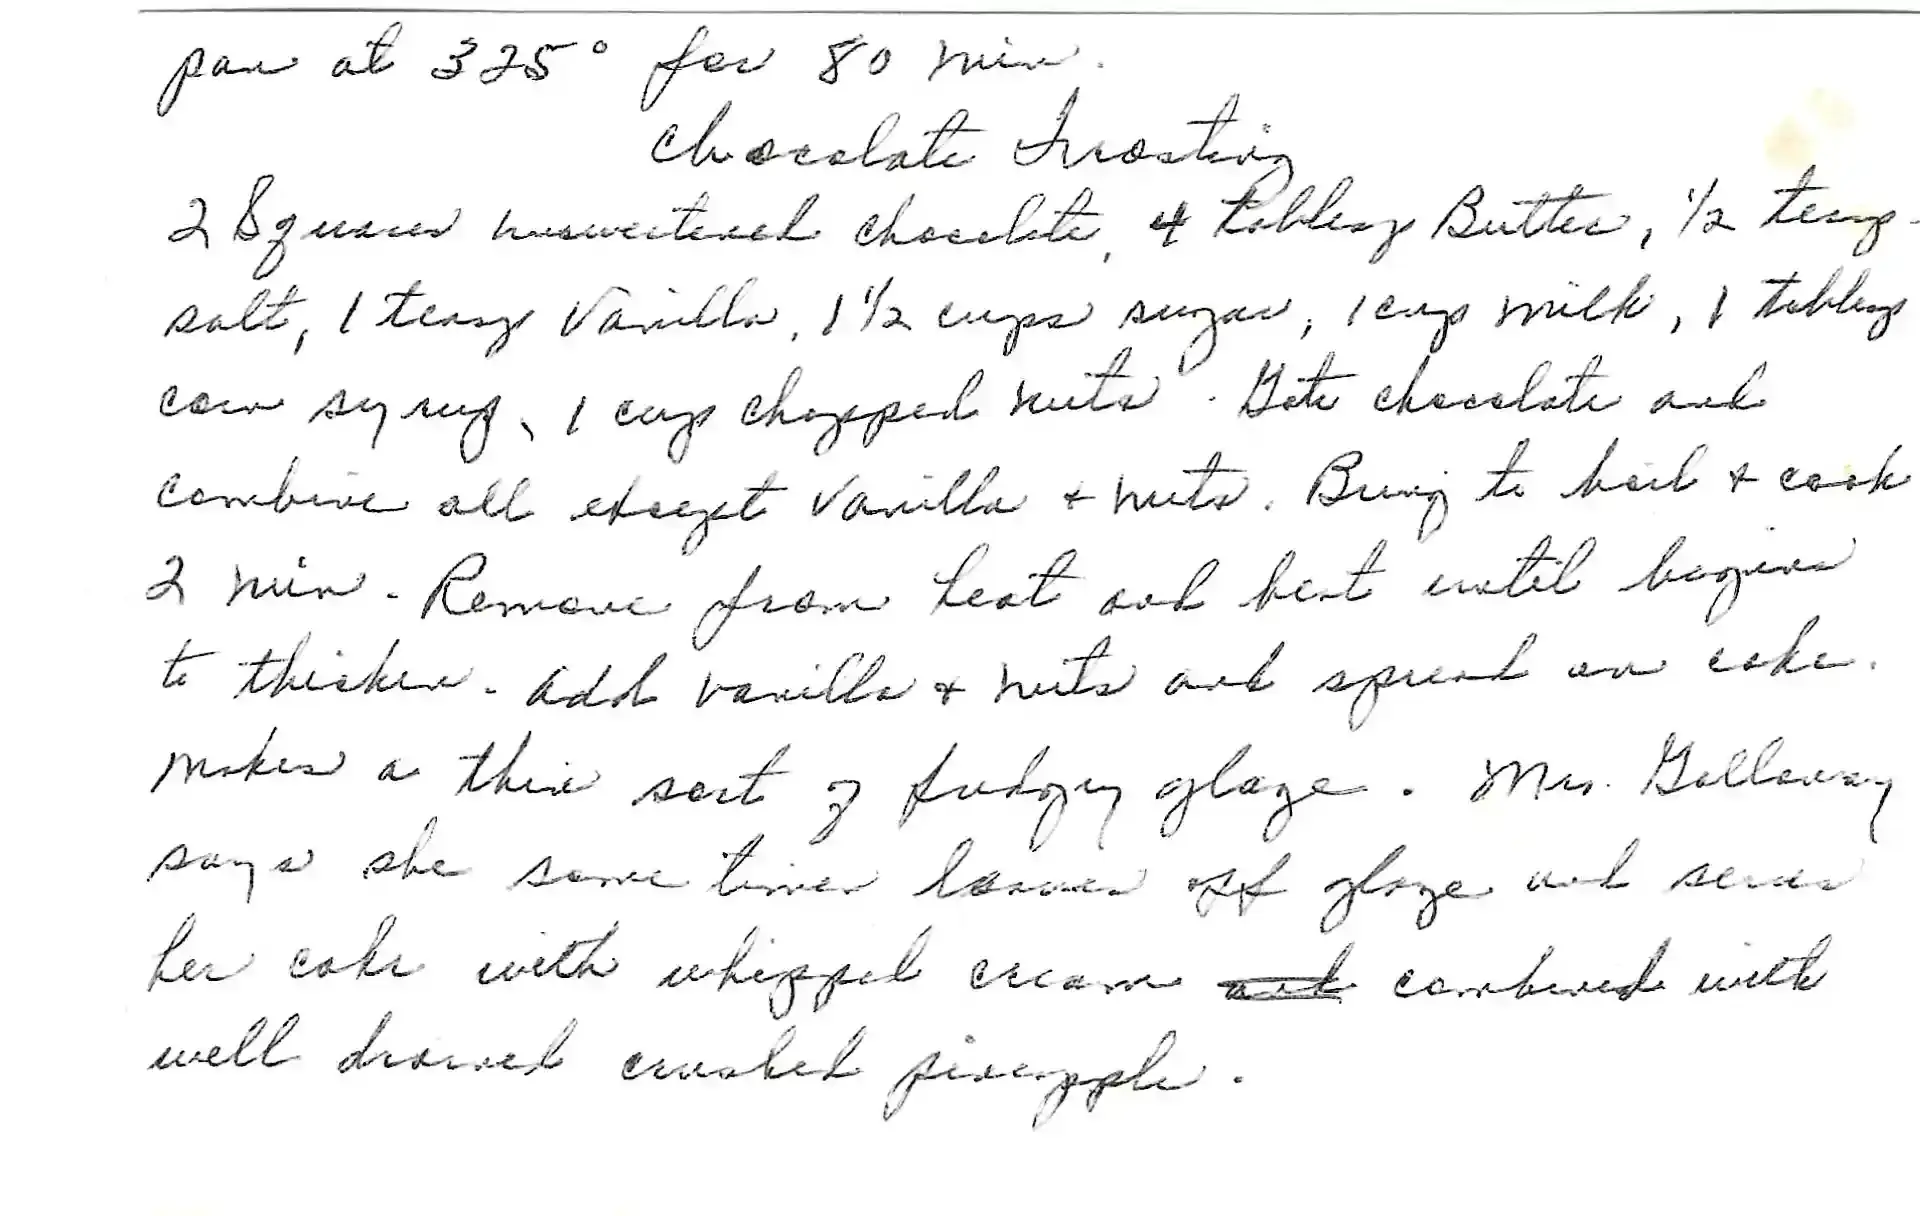 pan at 325° for 80 min.
Chocolate Frosting
2 Squares unsweetened chocolate, 4 tablesp Butter, 1/2 teasp
salt, 1 teasp Vanilla, 1 1/2 cups sugar, 1 cup milk, 1 tablesp
corn syrup, 1 cup chopped nuts. Grate chocolate and
combine all except Vanilla + nuts. Bring to boil + cook
2 min. Remove from heat and beat until begins
to thicken. Add vanilla + nuts and spread on cake.
Makes a thin sort of fudgey glaze. Mrs. Galloway
says she some times leaves off glaze and serves
her cake with whipped cream combined with
well drained crushed pineapple.